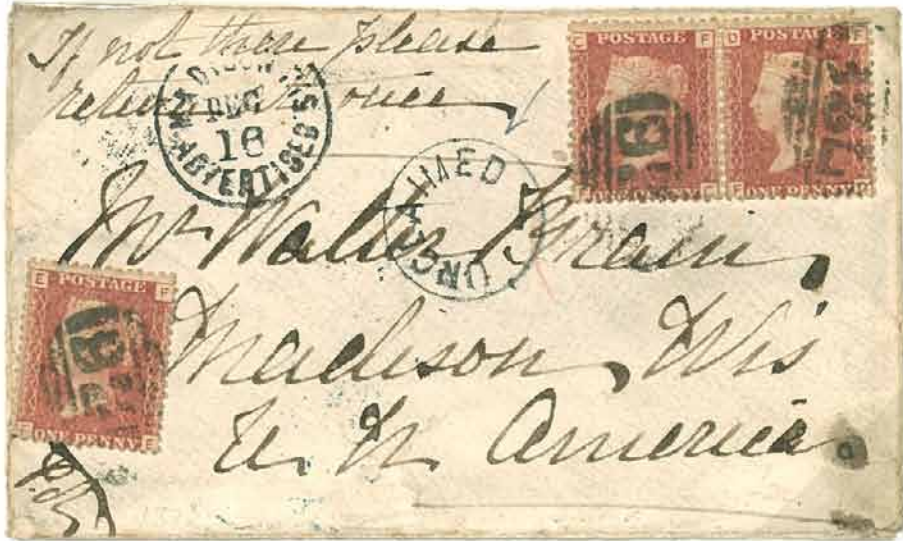 If not there please
return once
MADISON WIS
DEC
16
ADVERTISED
UNCLAIMED
C F
POSTAGE
ONE PENNY
D F
POSTAGE
ONE PENNY
Mr Walter Train,
Madison, Wis
U. N. America
E F
POSTAGE
ONE PENNY